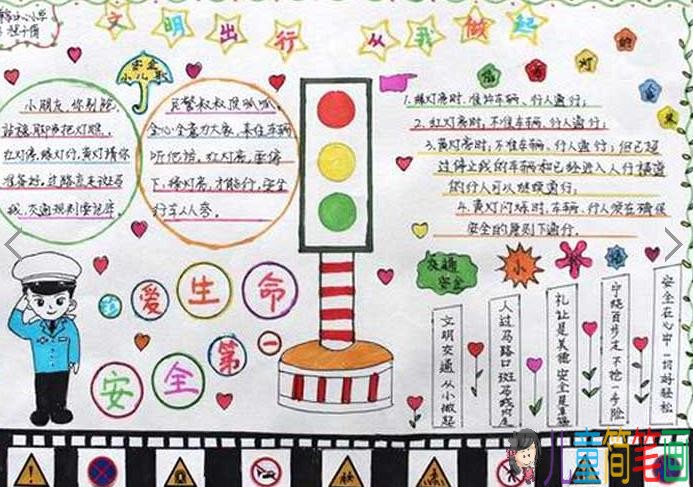 文明出行 从我做起
安全
小儿歌
小朋友,你别跑,
站稳脚步把灯瞧,
红灯停,绿灯行,黄灯请你
准备好,过路应走斑马
线,交通规则要记牢。
民警叔叔
全心全意为大家,
听他话,红灯亮,要停
下,绿灯亮,才能行,安全
行车人人夸。
信号灯的含义
1.绿灯亮时,准许车辆、行人通行;
2.红灯亮时,不准车辆、行人通行;
3.黄灯亮时,不准车辆、行人通行,但已越
过停止线的车辆和已经进入人行横道
的行人可以继续通行;
4.黄灯闪烁时,车辆、行人须在确保
安全的原则下通行。
珍爱生命
安全第一
交通
安全
小
文明交通 从小做起
人过马路口 斑马线内走
礼让是美德 安全是幸福
宁绕百步走 不抢一步险
安全在心中 一切好轻松
儿童简笔画